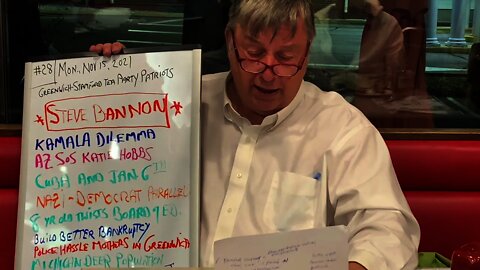 #28 Mon, Nov 15, 2021
Greenwich-Stamford Tea Party Patriots
* Steve Bannon *
Kamala Dilemma
AZ SOS Katie Hobbs
Cuba and Jan 6TH
Nazi-Democrat Parallel
8 yr old twists Board of Ed.
Build Better Bankruptcy
Police Hassle Mothers in Greenwich
Michigan Deer Population